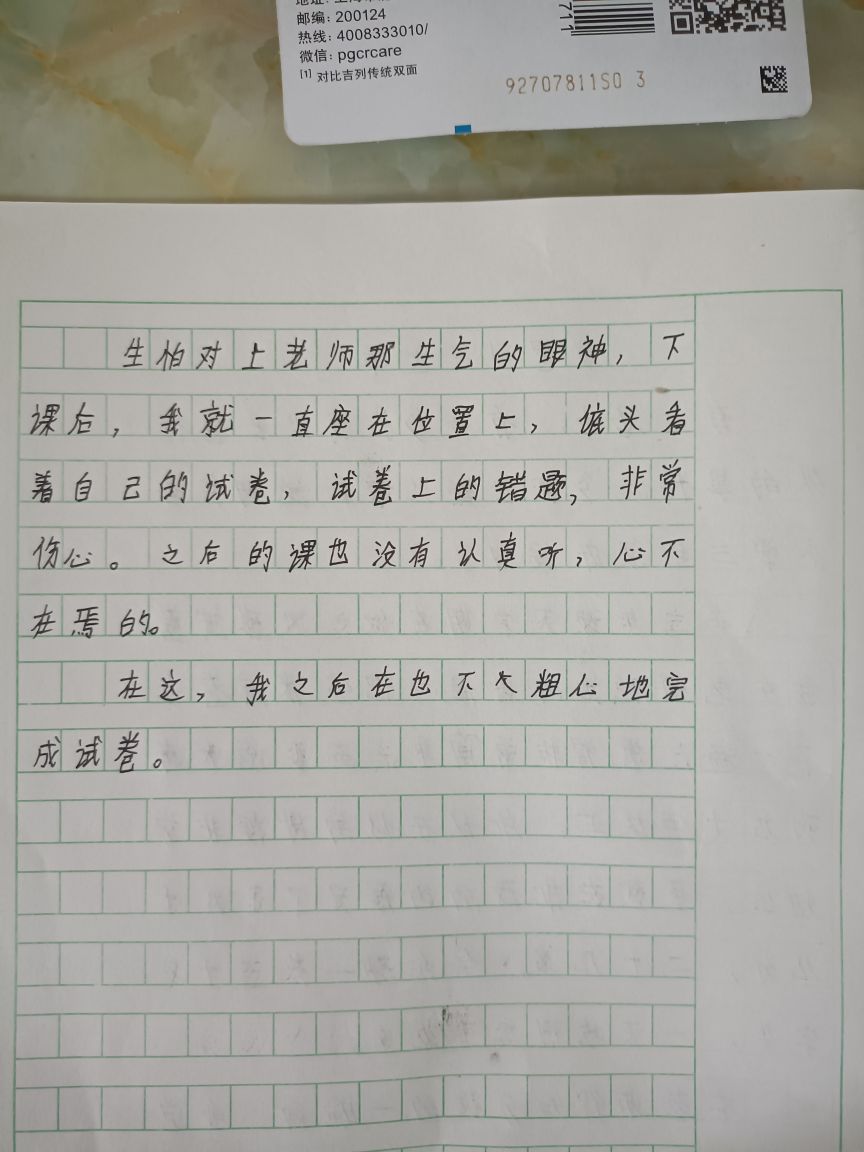 邮编：200124
热线：4008333010/
微信：pgcrcare
[1] 对比吉列传统双面
711
92707811S0 3
生怕对上老师那生气的眼神，下
课后，我就一直座在位置上，低头看
着自己的试卷，试卷上的错题，非常
伤心。之后的课也没有认真听，心不
在焉的。
在这，我之后在也不大粗心地完
成试卷。